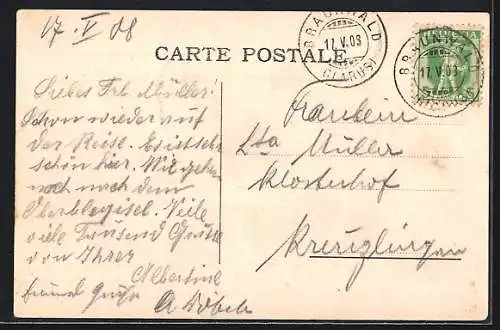 17. V 08
BRAUNWALD
17.V.08
(GLARUS)
HELVETIA
BRAUNWALD
17.V.08
(GLARUS)
CARTE POSTALE.
Liebes Frl Müller!
Schon wieder auf
der Reise. Es ist sehr
schön hier. Wir gehen
noch nach dem
Oberblegisel. Viele
viele Tausend Grüsse
von Ihrer
Albertine
Fräulein
Müller
Klosterhof
Kreuzlingen